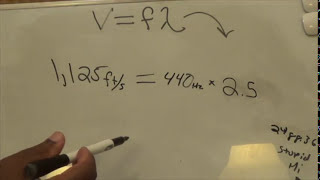 V = fλ
1,125 ft/s = 440 Hz × 2.5
stupid
Mi